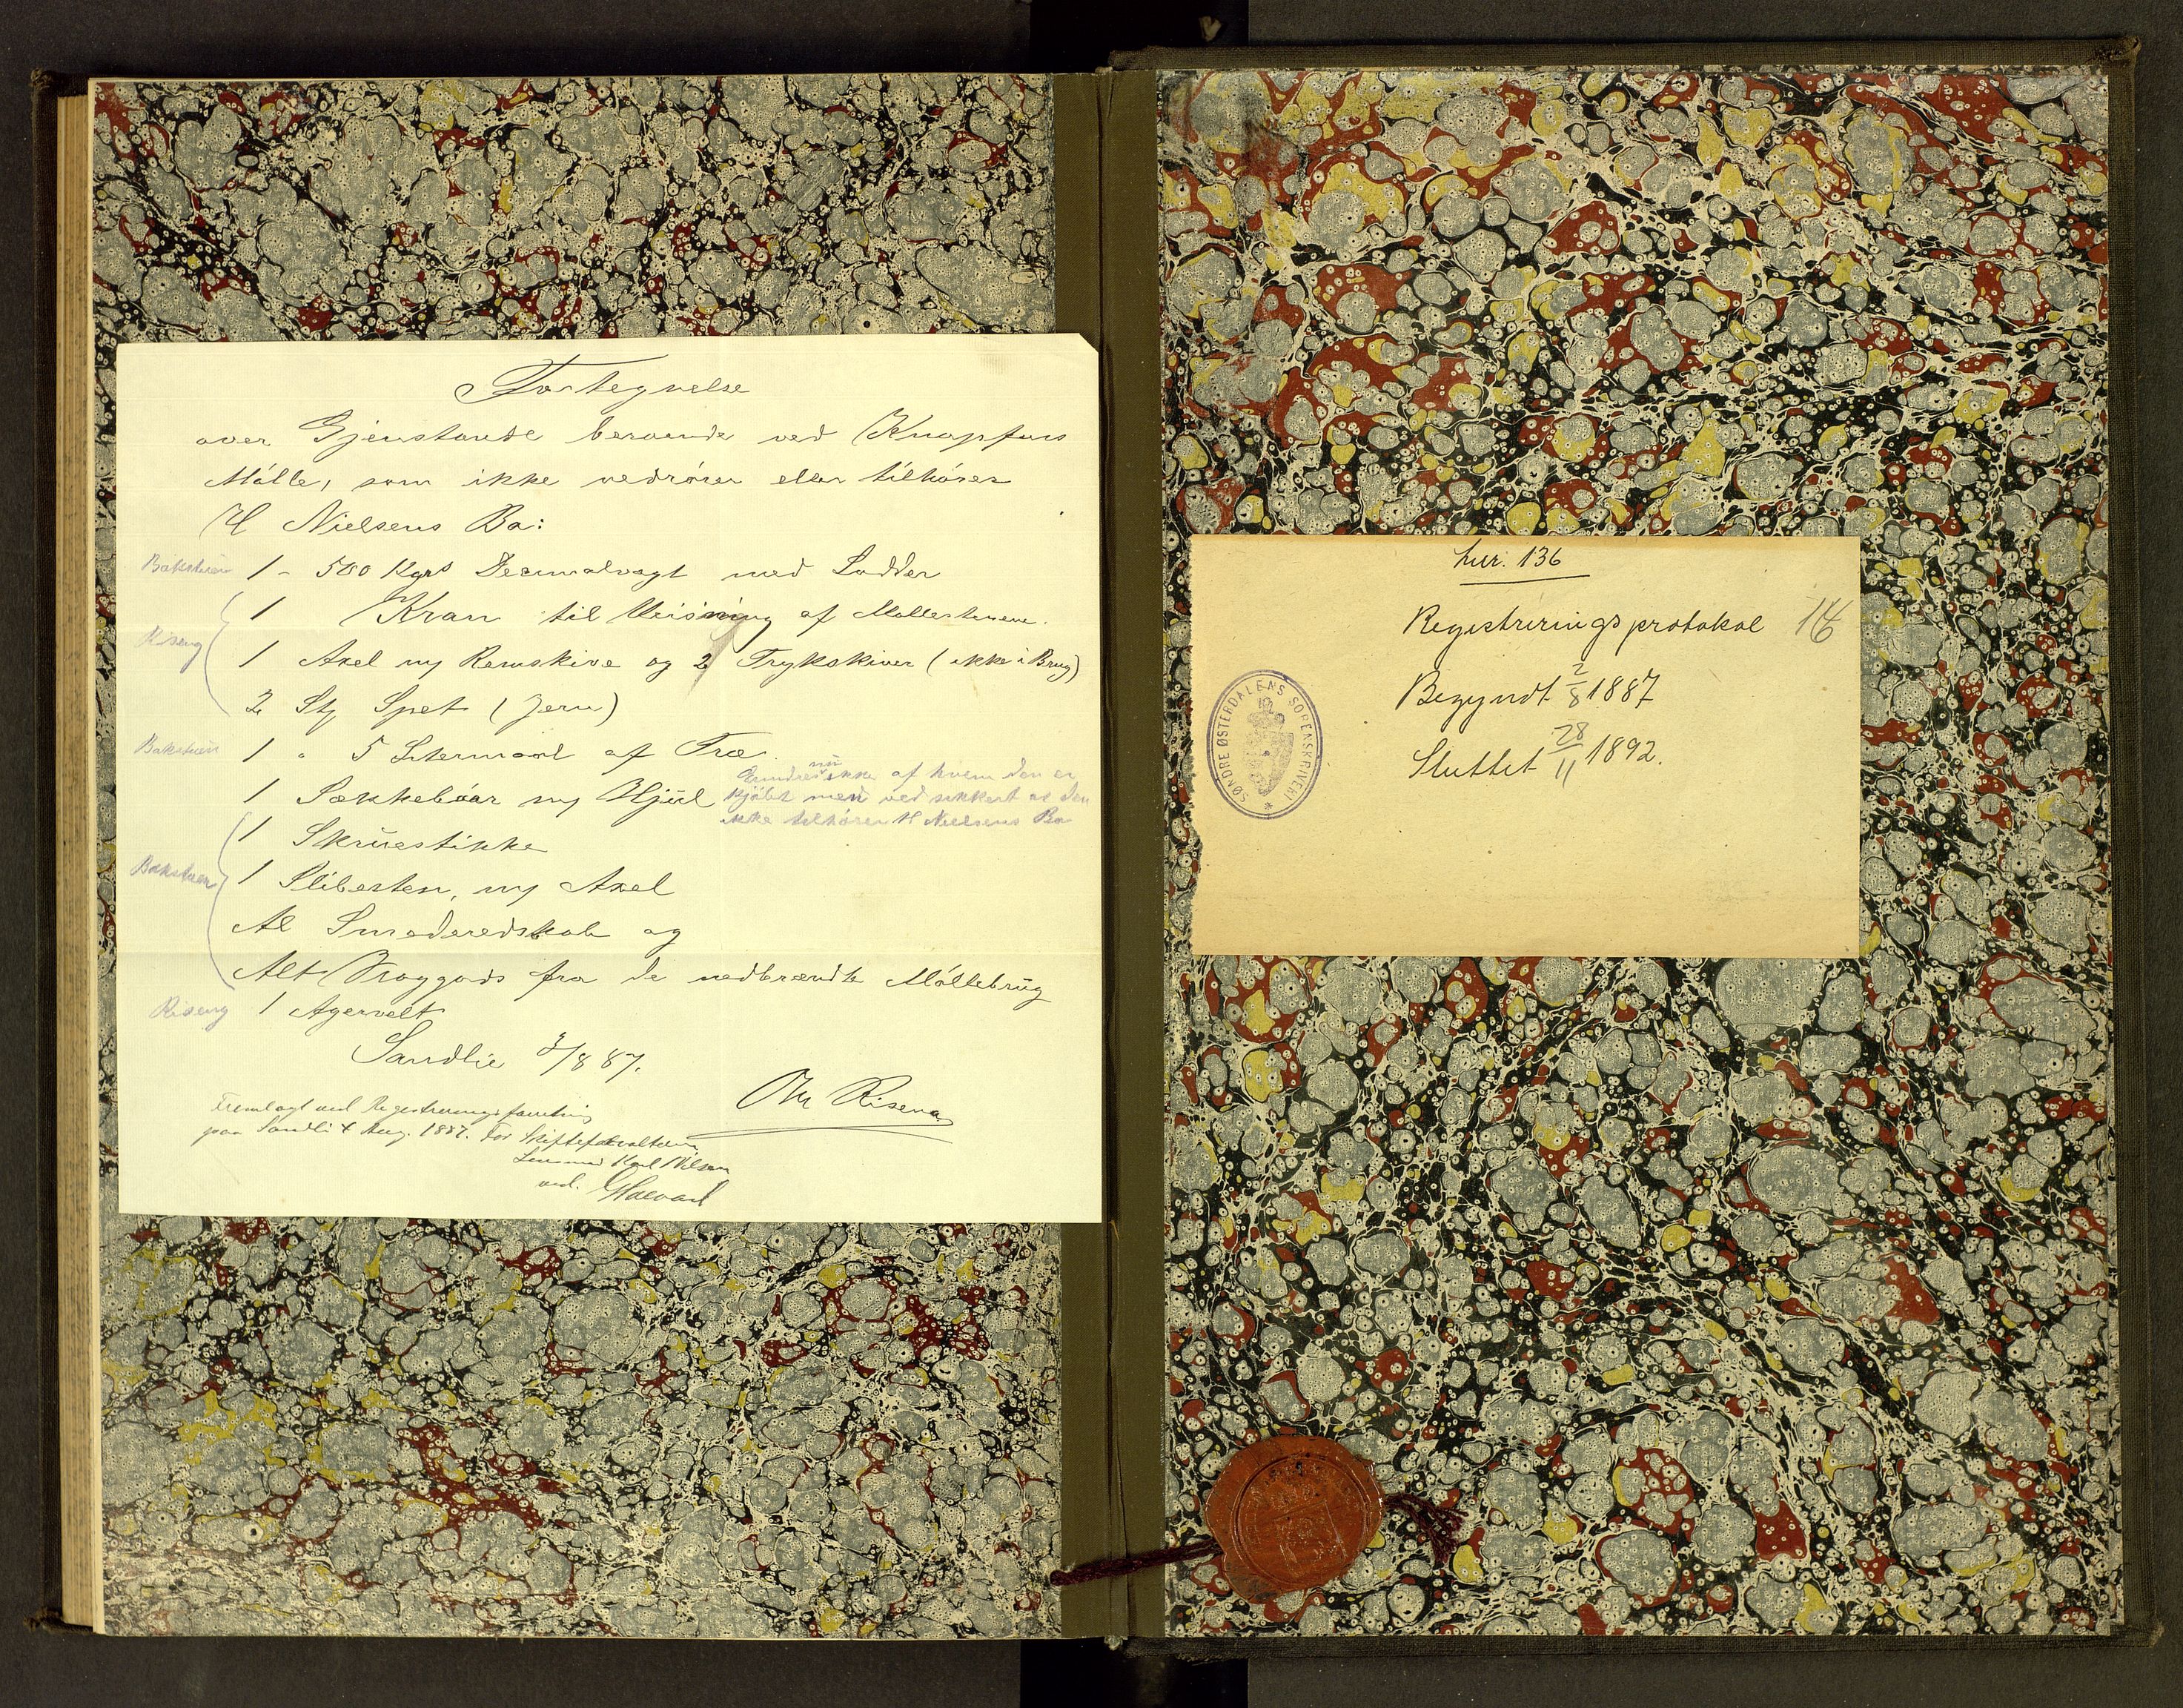 Fortegnelse
over Gjenstande beroende ved Knapfus
Mölle, som ikke vedrörer eller tilhörer
H Nielsens Bo:
Bakstuen 1 - 500 Kgrs Desimalvægt med Lodder
1 Kran til Heisning af Møllestenene.
Riseng
1 Axel m/ Remskive og 2 Trykskiver (ikke i Brug)
2 Stk Spet (Jern)
Bakstuen 1 " 5 Litermaal af Træ.
1 Sækkebaar m/ Hjul
Erindres nu ikke af hvem den er
kjöbt men ved sikkert at den
ikke tilhörer H Nielsens Bo
1 Skruestikke
Bakstuen 1 Slibesten, m/ Axel
Al Smederedskab og
Alt Vraggods fra de nedbrændte Möllebrug
Riseng 1 Agervelt
Sandlie 3/8 87.
Ole Riseng
Fremlagt ved Registreringsforretning
paa Sandli 4 Aug. 1887. For Skifteforvalteren
Lensmand Karl Nilsen
ved.
hur. 136
Registreringsprotokol 16
Begyndt 2/8 1887
Sluttet 28/11 1892.
SØNDRE ØSTERDALENS SORENSKRIVERI